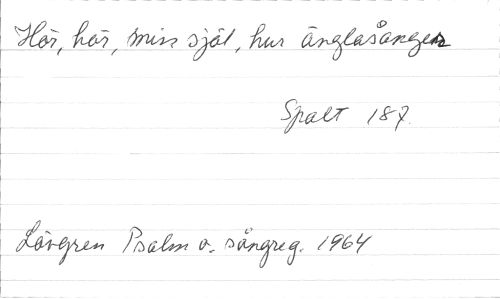 Hör, hör, min själ, hur änglasången
Spalt 187.
Lövgren Psalm o. sångreg. 1964